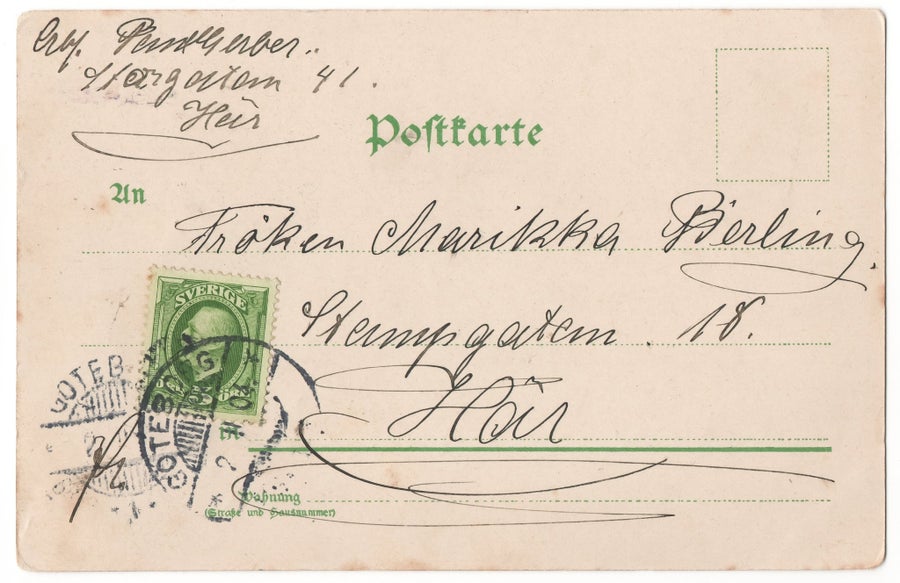 Storgatan 41.
Här
Postkarte
An
Fröken Marikka Berling.
Stampgatan. 18.
Här
SVERIGE
5 ÖRE
GÖTEB
GÖTEBORG
Wohnung
(Straße und Hausnummer)